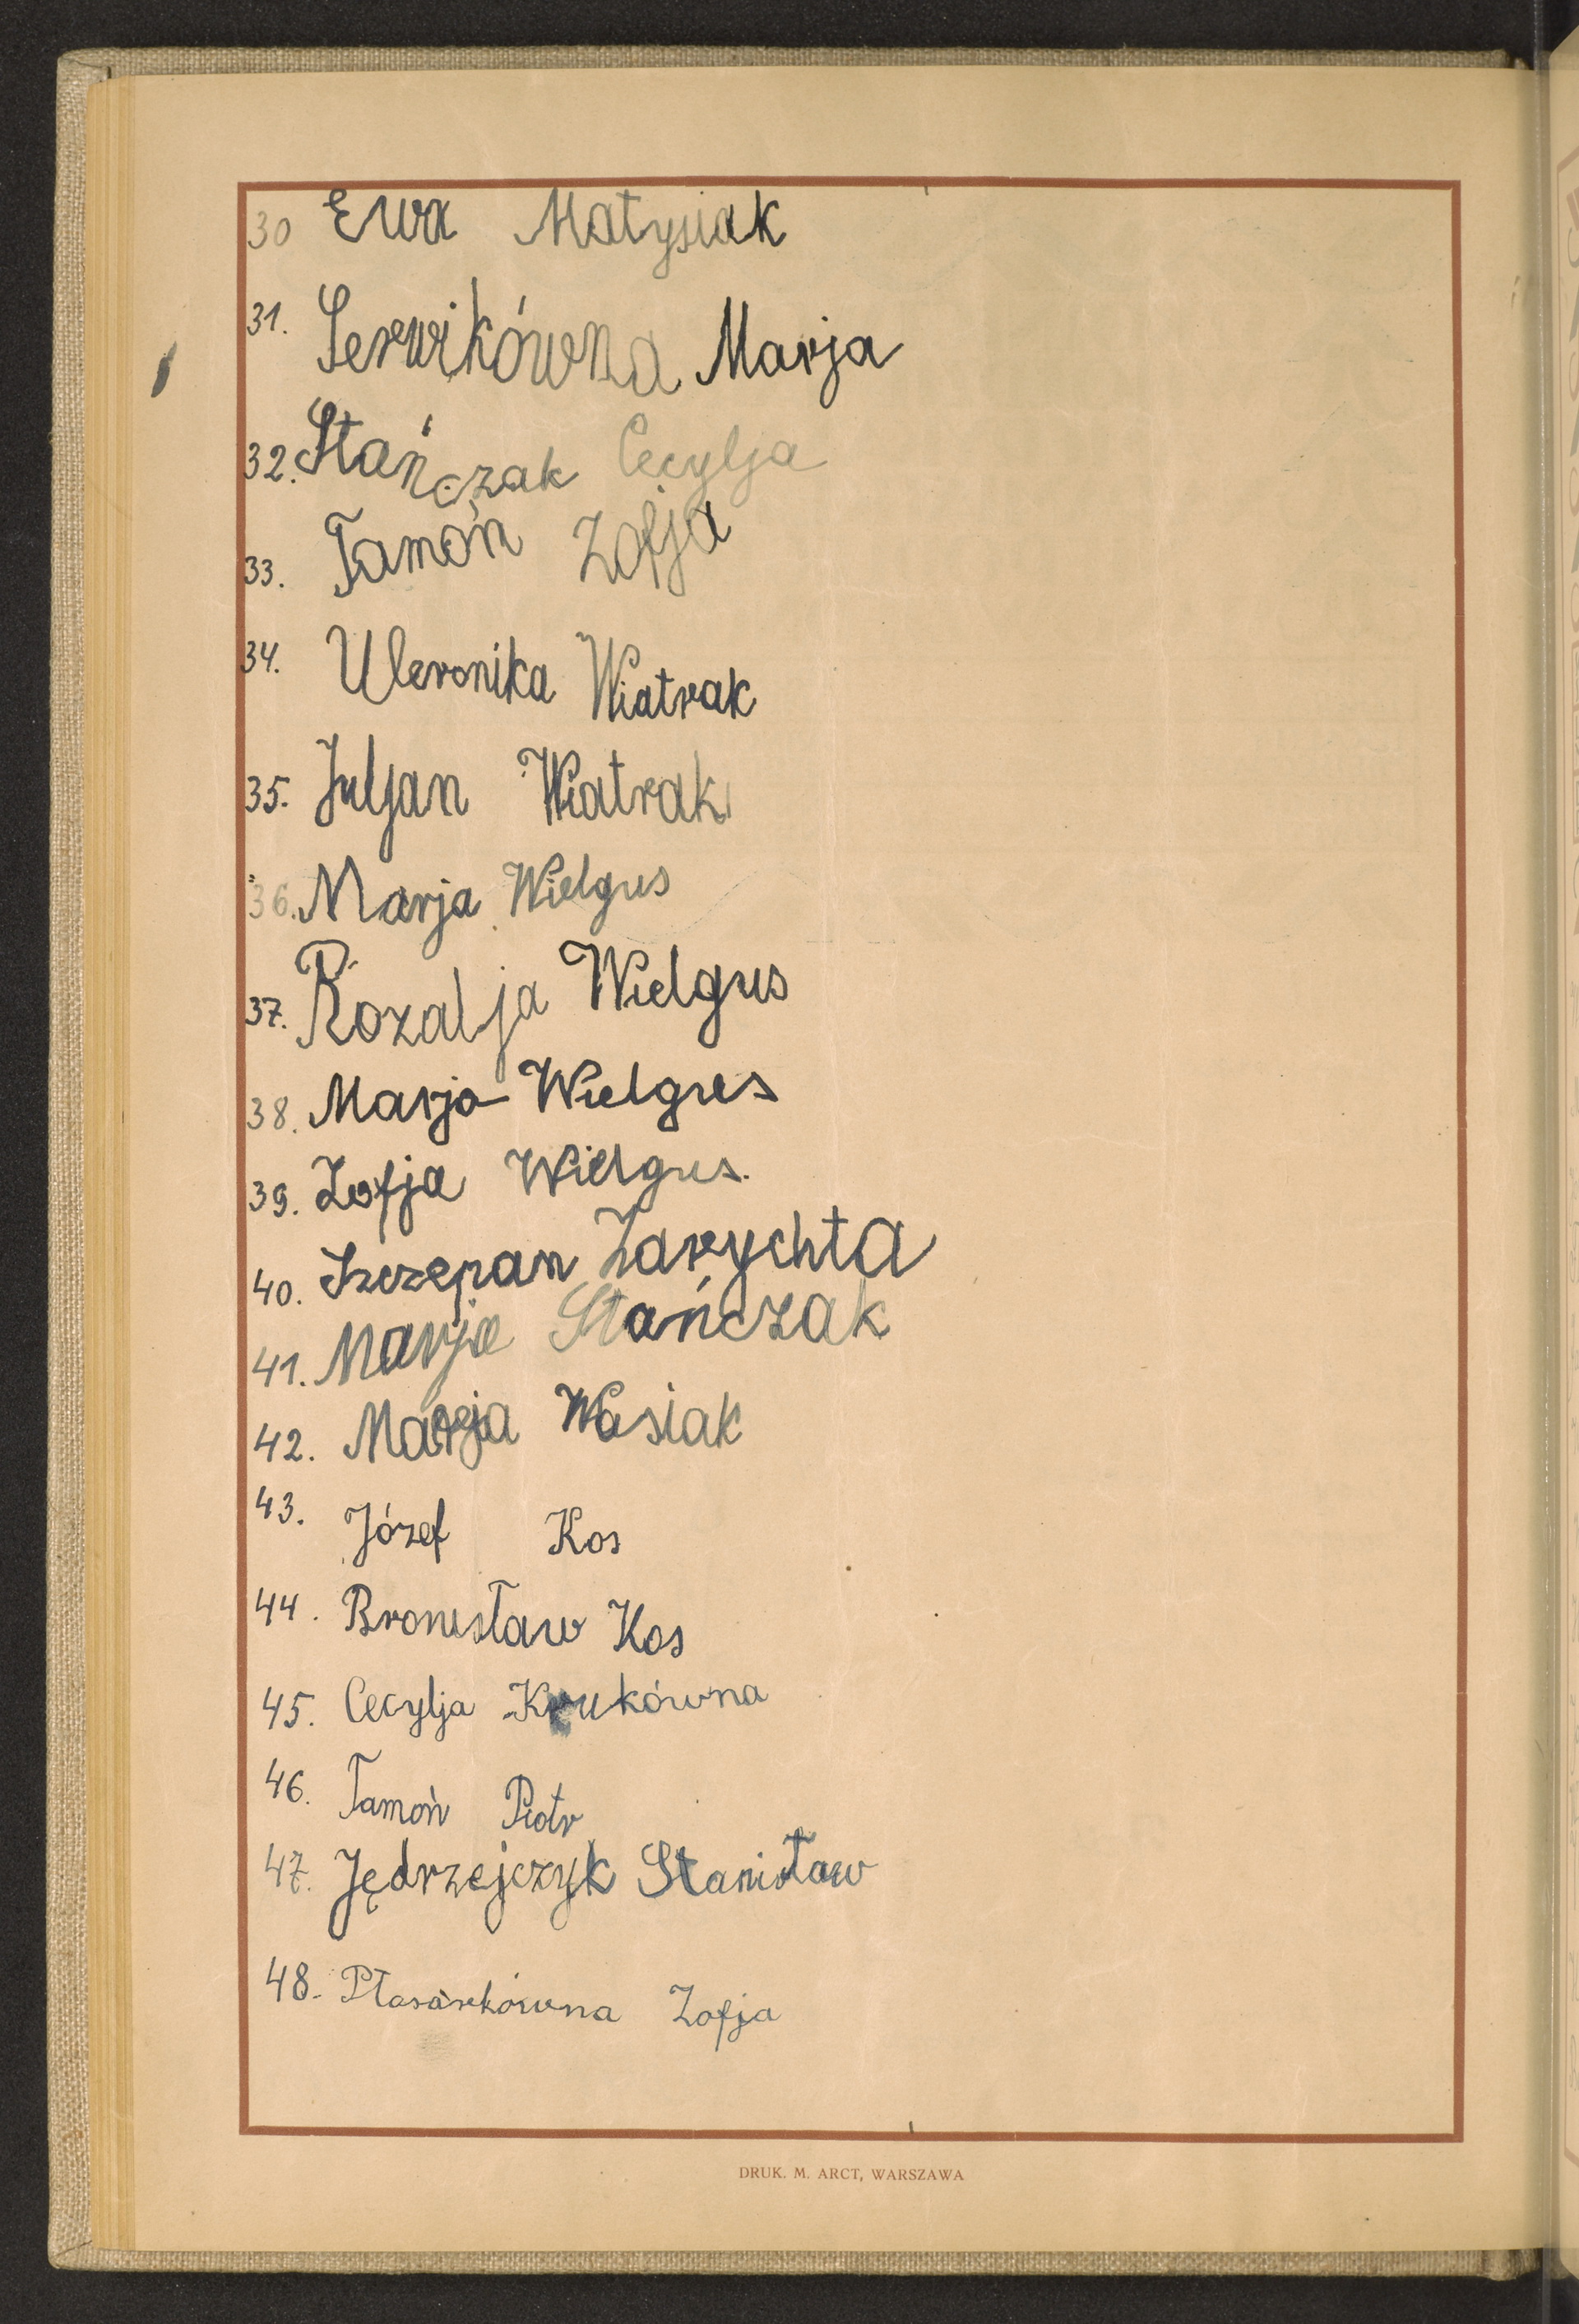 30 Ewa Matysiak
31. Serwikówna Marja
32. Stańczak Cecylja
33. Tamoń Zofja
34. Weronika Wiatrak
35. Juljan Wiatrak
36. Marja Wielgus
37. Rozalja Wielgus
38. Marja Wielgus
39. Zofja Wielgus.
40. Szczepan Zarychta
41. Marja Stańczak
42. Marja Wasiak
43. Józef Kos
44. Bronisław Kos
45. Cecylja Krukówna
46. Tamoń Piotr
47. Jędrzejczyk Stanisław
48. Zofja
DRUK. M. ARCT, WARSZAWA